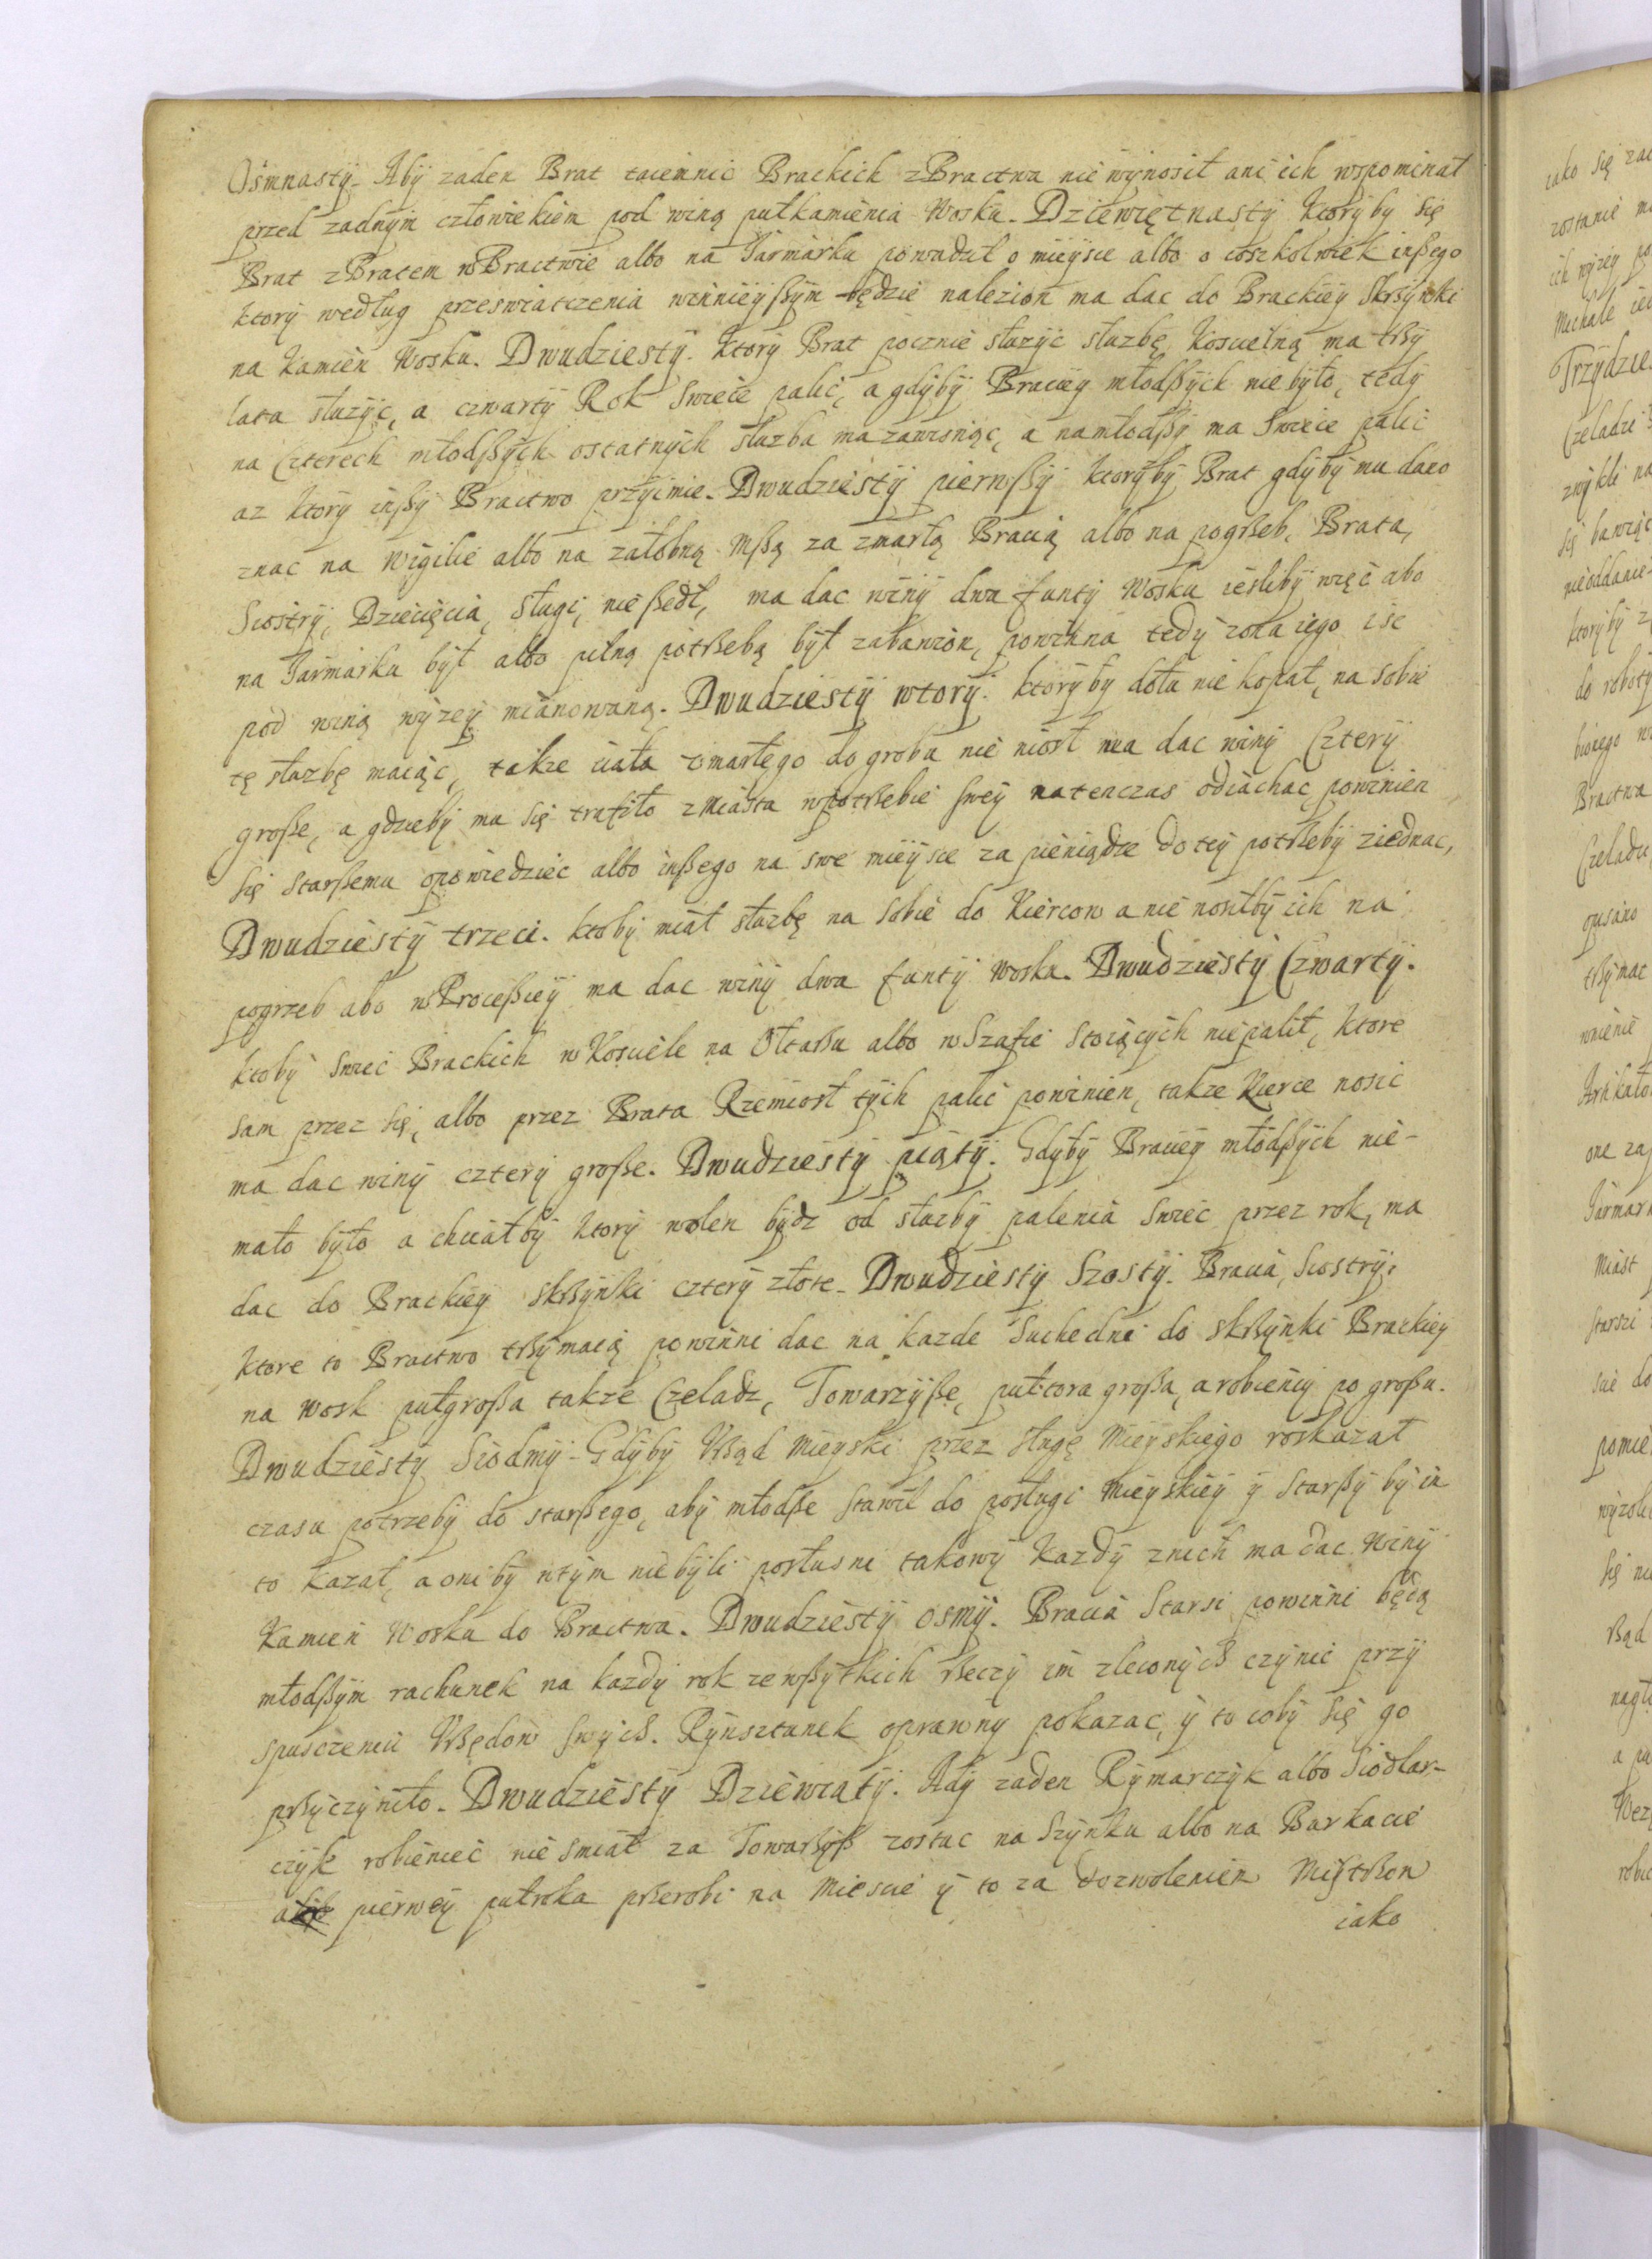 Ośmnasty. Aby zaden Brat taiemnic Brackich z Bractwa nie wynosił ani ich wspominał
przed zadnÿm człowiekiem pod winą pułkamienia Wosku. Dziewiętnastÿ. Ktorÿby się
Brat z Bratem w Bractwie albo na Jarmarku powadził o mieÿsce albo o coszkolwiek inßego
ktorÿ według przeswiatczenia winnieÿßÿm będzie nalezion ma dac do Brackieÿ Skrzÿnki
na Kamien Wosku. Dwudziestÿ. Ktorÿ Brat pocznie słuzÿc słuzbę Koscielną ma trzÿ
lata słuzÿc, a czwartÿ Rok Swiece palic, a gdÿbÿ Braciey młodßÿch nie bÿło, tedÿ
na Czterech młodßÿch ostatnÿch słuzba ma zawisnąc, a namłodßÿ ma Swiece palic
az ktorÿ inßÿ Bractwo przÿimie. Dwudziestÿ pierwßÿ ktorÿbÿ Brat gdÿbÿ mu dano
znac na Wigilie albo na załobną Mßą za zmarłą Bracią albo na pogrzeb, Brata,
Siostrÿ, Dziecięcia, Sługi, nie ßedł, ma dac winÿ dwa funtÿ Wosku iesliby więc abo
na Jarmarku bÿł albo pilną potrzebą bÿł zabawion, powinna tedÿ zona iego isc
pod winą wÿzeÿ mianowaną. Dwudziestÿ wtorÿ. ktorÿbÿ dołu nie kopał, na sobie
tę słuzbę maiąc, takze ciała zmarłego do grobu nie niosł ma dac winÿ Czterÿ
große, a gdziebÿ mu się trafiło z Miasta w potrzebie swey natenczas odiachac powinien
się starßemu opowiedziec albo inßego na swe mieÿsce za pieniądze do teÿ potrzebÿ ziednac,
Dwudziestÿ trzeci. ktobÿ miał słuzbę na sobie do Kiercow a nie nosiłbÿ ich na
pogrzeb abo w Proceßiey ma dac winÿ dwa funtÿ wosku. Dwudziestÿ Czwartÿ.
ktobÿ swiec Brackich w Kosciele na Ołtarzu albo w Szafie stoiącÿch nie palił, ktore
sam przez się, albo przez Brata Rzemiosł tÿch palic powinien, takze Kierce nosic
ma dac winÿ czterÿ große. Dwudziestÿ piątÿ. Gdÿbÿ Bracieÿ młodßÿch nie-
mało bÿło a chciałbÿ ktorÿ wolen bÿdz od słuzbÿ palenia Swiec przez rok, ma
dac do Brackieÿ skrzÿnki czterÿ złote. Dwudziestÿ Szostÿ. Bracia, Siostrÿ,
ktore to Bractwo trzÿmaią powinni dac na kazde Suchedni do skrzÿnki Brackieÿ
na wosk pułgroßa takze Czeladz, Towarzÿße, pułtora großa, a robiency po großu.
Dwudziestÿ Siodmÿ. Gdÿbÿ Vrząd Mieyski przez sługę Mieÿskiego roskazał
czasu potrzebÿ do starßego, abÿ młodße stawił do posługi Mieÿskieÿ ÿ starßÿ bÿ im
to kazał, a oni bÿ w tÿm nie bÿli posłusni takowÿ kazdÿ z nich ma dac Winÿ
Kamień Wosku do Bractwa. Dwudziestÿ osmÿ. Bracia Starsi powinni będą
młodßÿm rachunek na kazdÿ rok ze wßÿtkich rzeczÿ im zleconÿch czÿnic przÿ
spusczeniu Vrzędow swÿch. Rÿnsztunek oprawnÿ pokazac, ÿ to cobÿ się go
przÿczÿniło. Dwudziestÿ Dziewiatÿ. Abÿ zaden Rÿmarczÿk albo Siodlar-
czÿk robieniec nie smiał za Towarzÿß zostac na Szÿnku albo na Barkacie
pierweÿ pułroka przerobi na Miescie ÿ to za dozwoleniem Mistrzow
iako